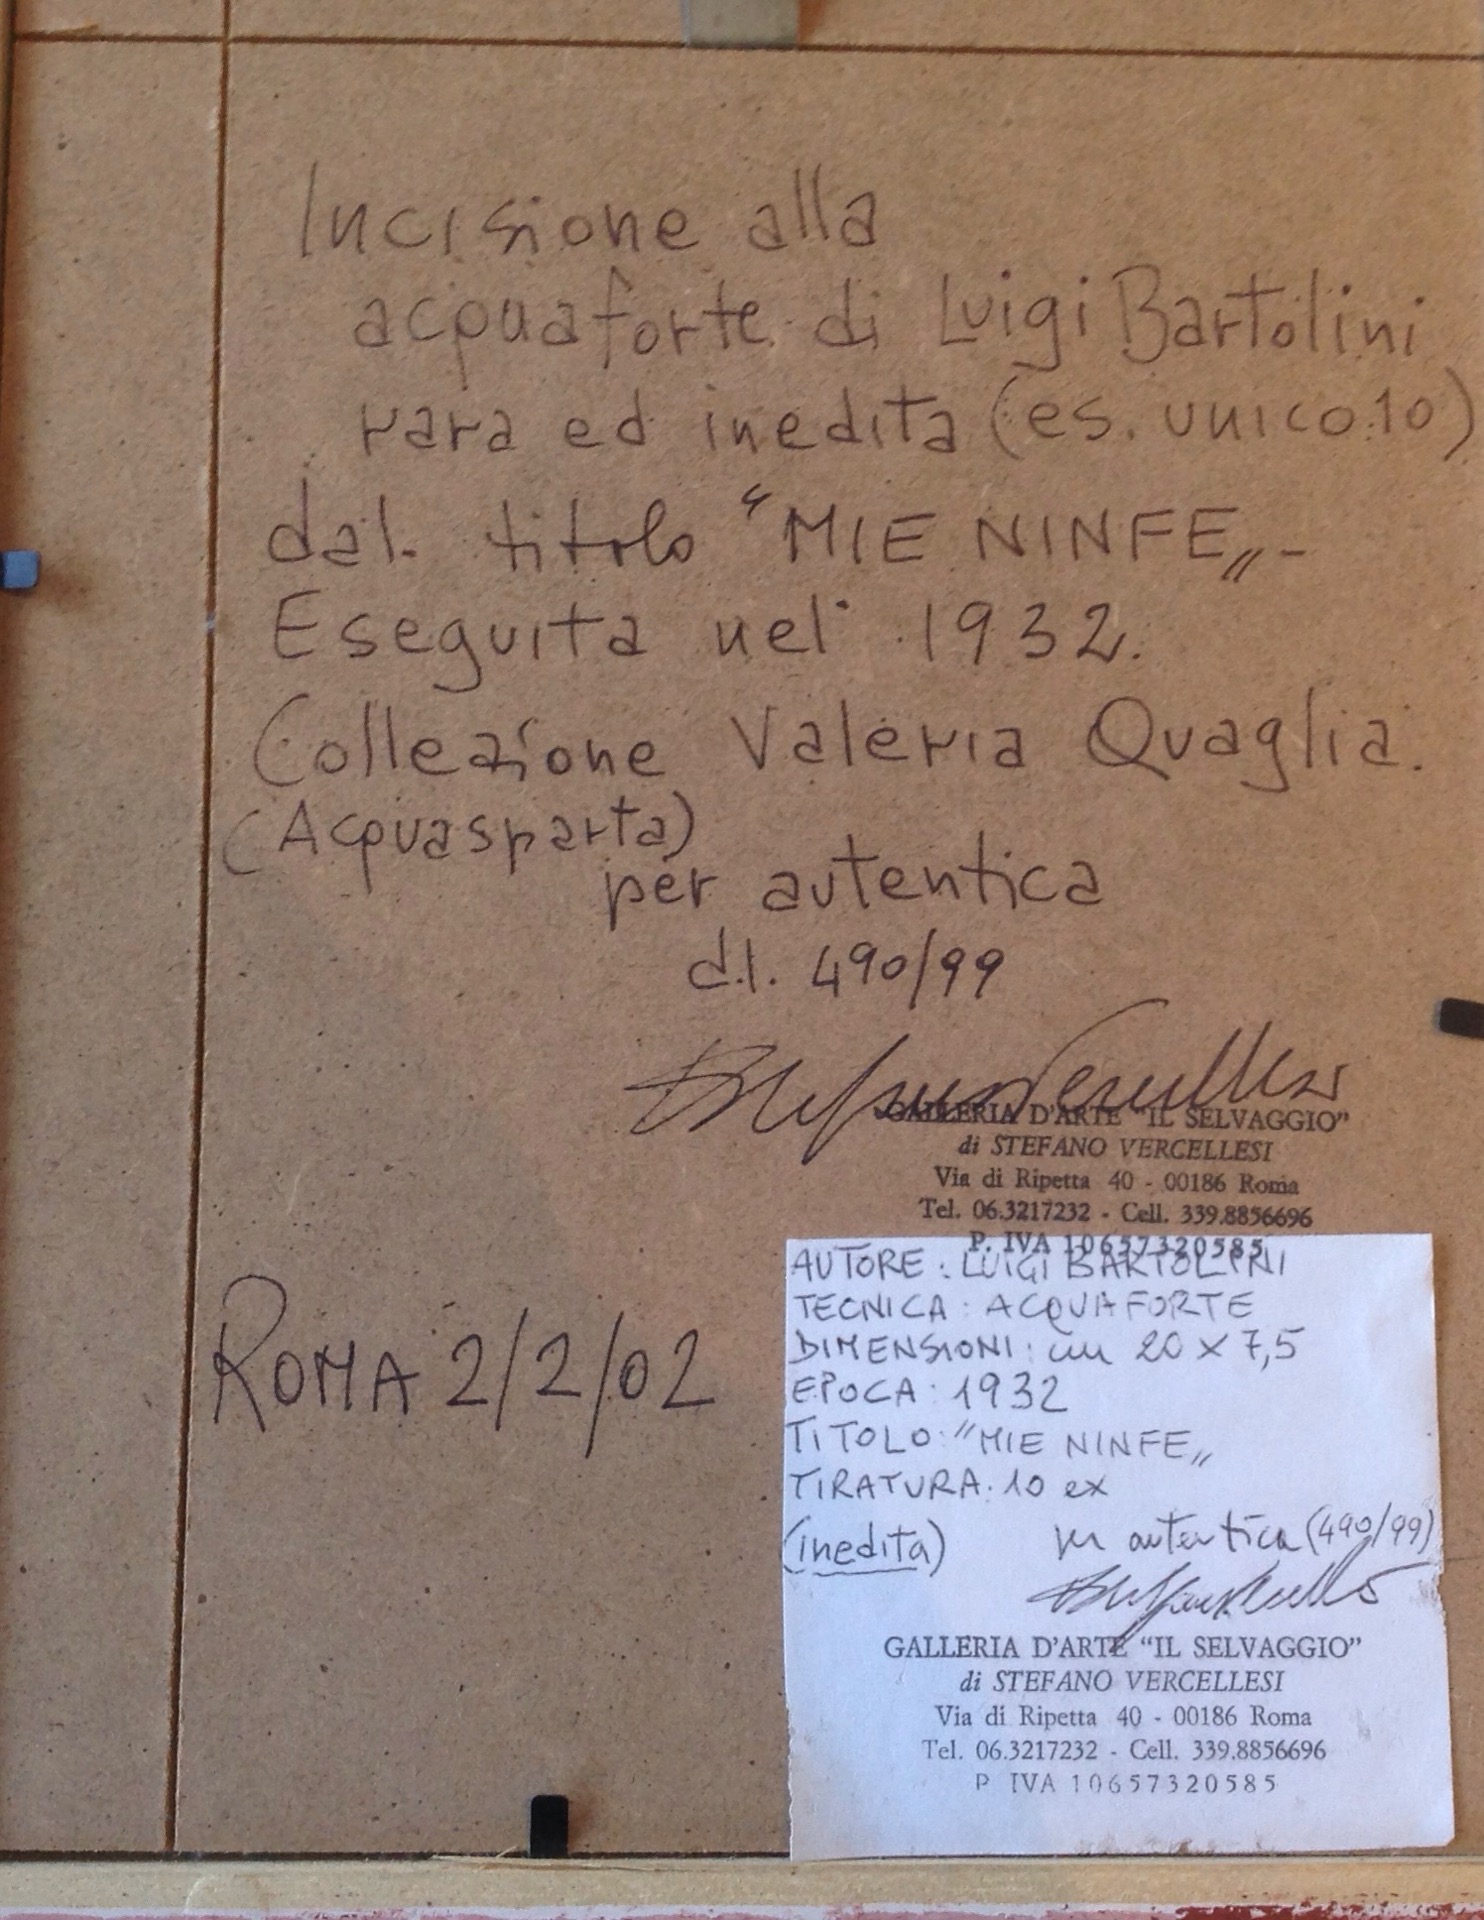 Incisione alla
acquaforte di Luigi Bartolini
rara ed inedita (es. unico 10)
dal titolo "MIE NINFE„-
Eseguita nel 1932.
Collezione Valeria Quaglia.
(Acquasparta)
per autentica
d.l. 490/99
Stefano Vercellesi
GALLERIA D'ARTE "IL SELVAGGIO"
di STEFANO VERCELLESI
Via di Ripetta 40 - 00186 Roma
Tel. 06.3217232 - Cell. 339.8856696
P. IVA 10657320585
ROMA 2/2/02
AUTORE: LUIGI BARTOLINI
TECNICA: ACQUAFORTE
DIMENSIONI: cm 20 x 7,5
EPOCA: 1932
TITOLO: "MIE NINFE„
TIRATURA: 10 ex
(inedita) per autentica (490/99)
Stefano Vercellesi
GALLERIA D'ARTE "IL SELVAGGIO"
di STEFANO VERCELLESI
Via di Ripetta 40 - 00186 Roma
Tel. 06.3217232 - Cell. 339.8856696
P IVA 10657320585